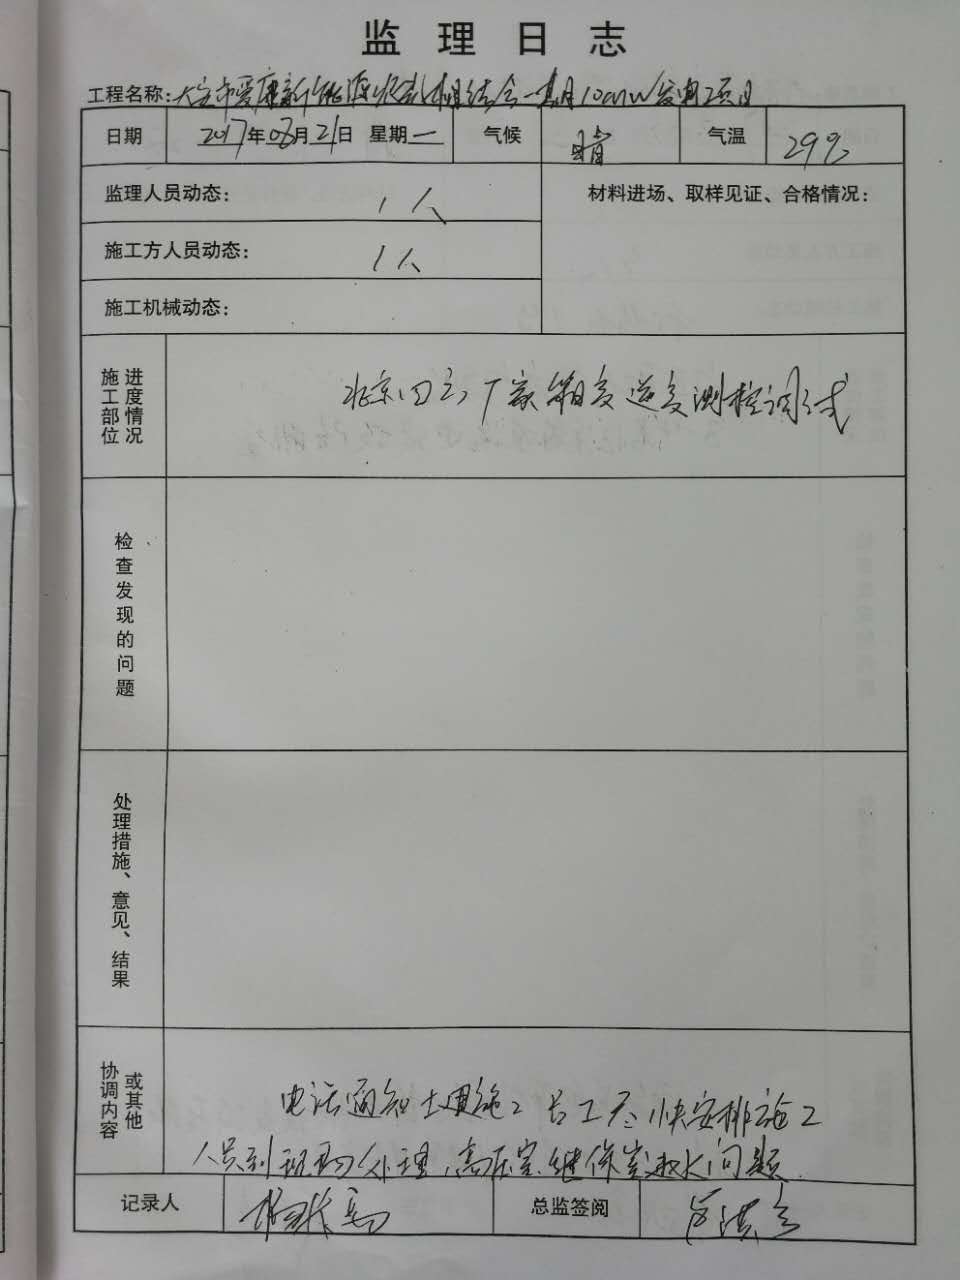 监理日志
工程名称：大安市爱康新能源牧光互补相结合一期10MW发电项目
日期 2017年08月21日 星期一 气候 晴 气温 29℃
监理人员动态： 1人 材料进场、取样见证、合格情况：
施工方人员动态： 1人
施工机械动态：
施工部位进度情况 北京四方厂家箱变逆变测控调试
检查发现的问题
处理措施、意见、结果
协调内容或其他 电话通知土建施工 吕工尽快安排施工
人员到现场处理，高压室、继保室进水问题.
记录人
总监签阅